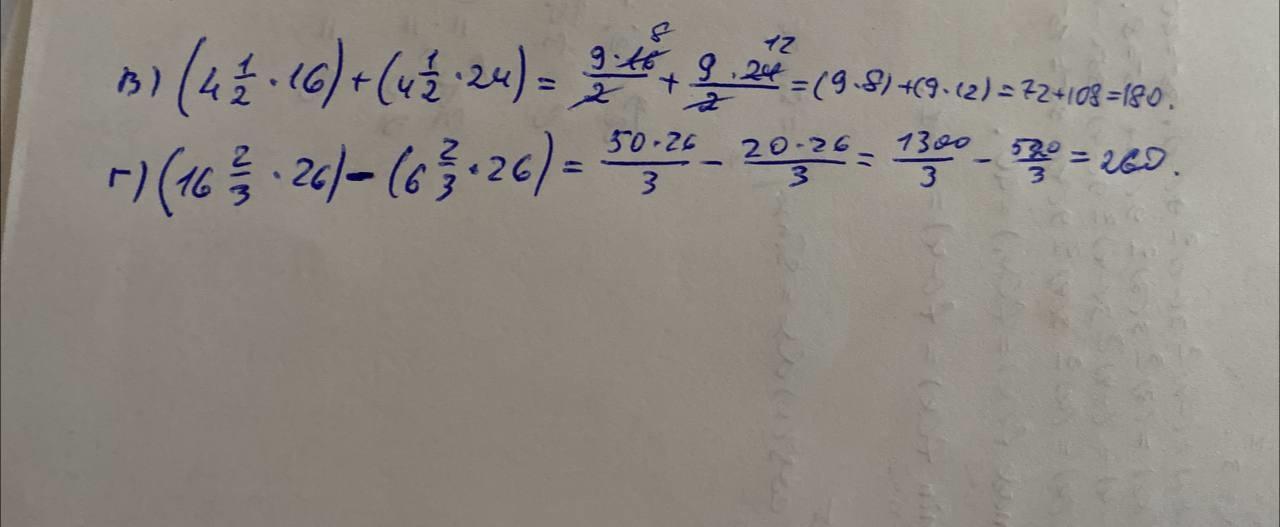 в) (4 1/2 · 16) + (4 1/2 · 24) = 9·16/2 8 + 9·24/2 12 = (9·8) + (9·12) = 72+108=180.
г) (16 2/3 · 26) - (6 2/3 · 26) = 50·26/3 - 20·26/3 = 1300/3 - 520/3 = 260.